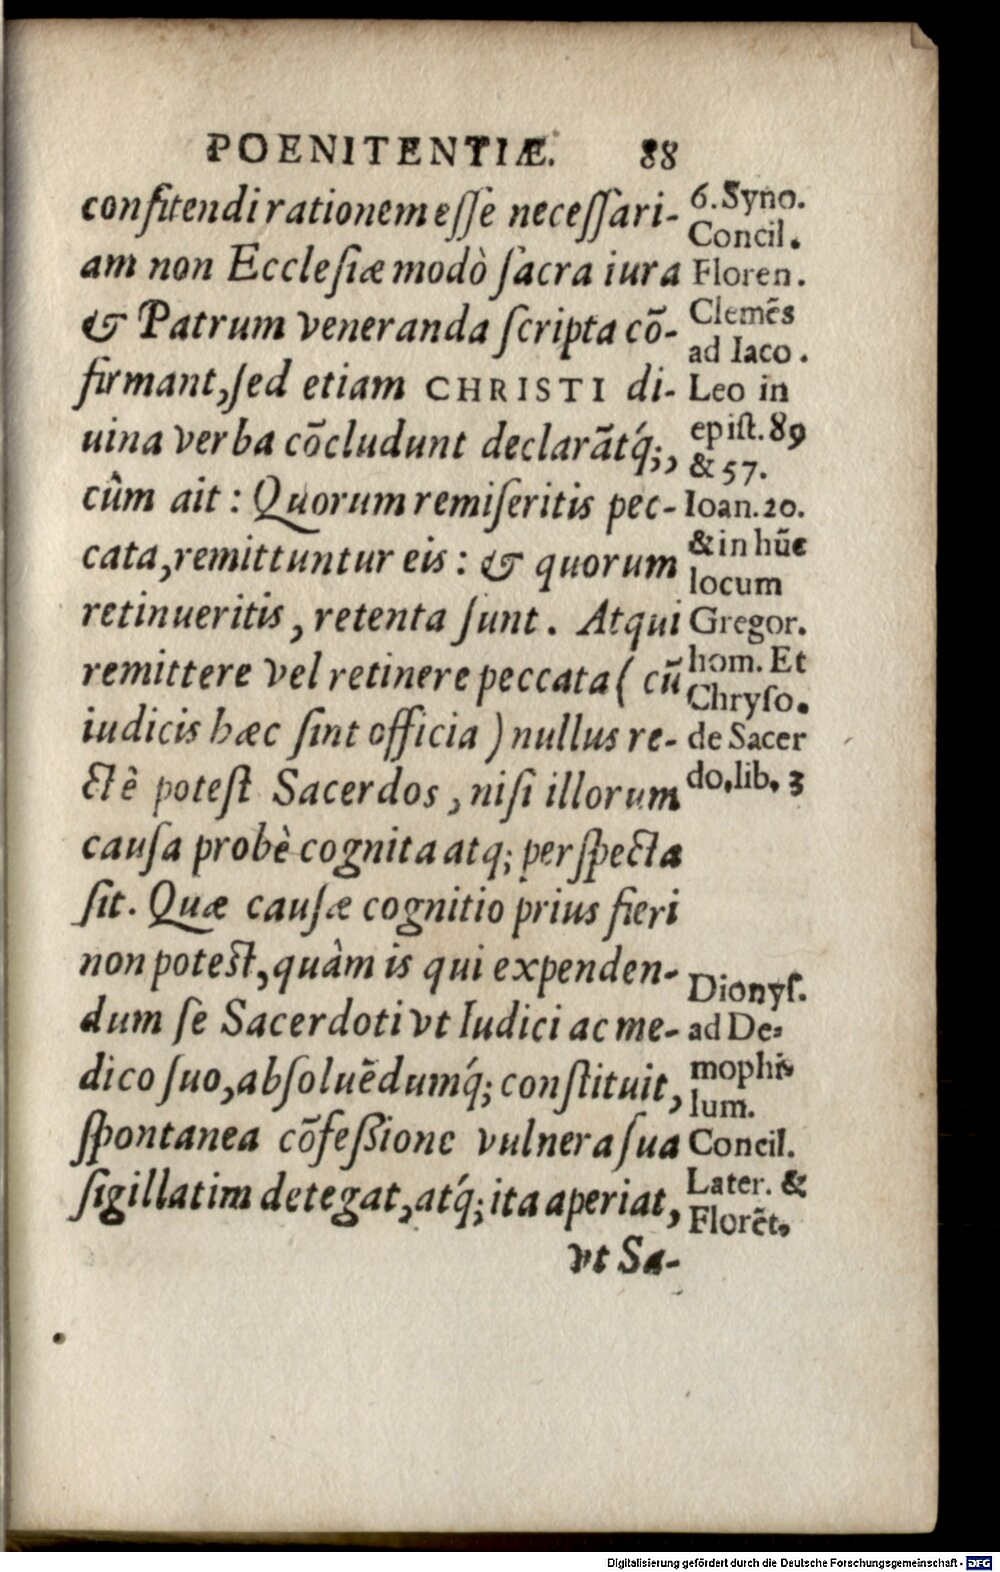 POENITENTIÆ. 88
confitendi rationem eſſe neceſſari-
am non Eccleſiæ modò ſacra iura
& Patrum veneranda ſcripta cō-
firmant, ſed etiam CHRISTI di-
uina verba cōcludunt declarātq́;,
cûm ait: Quorum remiſeritis pec-
cata, remittuntur eis: & quorum
retinueritis, retenta ſunt. Atqui
remittere vel retinere peccata (cū
iudicis hæc ſint officia) nullus re-
ctè poteſt Sacerdos, niſi illorum
cauſa probè cognita atq; perſpecta
ſit. Quæ cauſæ cognitio prius fieri
non poteſt, quàm is qui expenden-
dum ſe Sacerdoti vt Iudici ac me-
dico ſuo, abſoluēdumq́; conſtituit,
ſpontanea cōfeßione vulnera ſua
ſigillatim detegat, atq́; ita aperiat,
vt Sa-
6. Syno.
Concil.
Floren.
Clemēs
ad Iaco.
Leo in
epiſt. 89
& 57.
Ioan. 20.
& in hūc
locum
Gregor.
hom. Et
Chryſo.
de Sacer
do, lib. 3
Dionyſ.
ad De-
mophi-
lum.
Concil.
Later. &
Florēt.
Digitalisierung gefördert durch die Deutsche Forschungsgemeinschaft - DFG